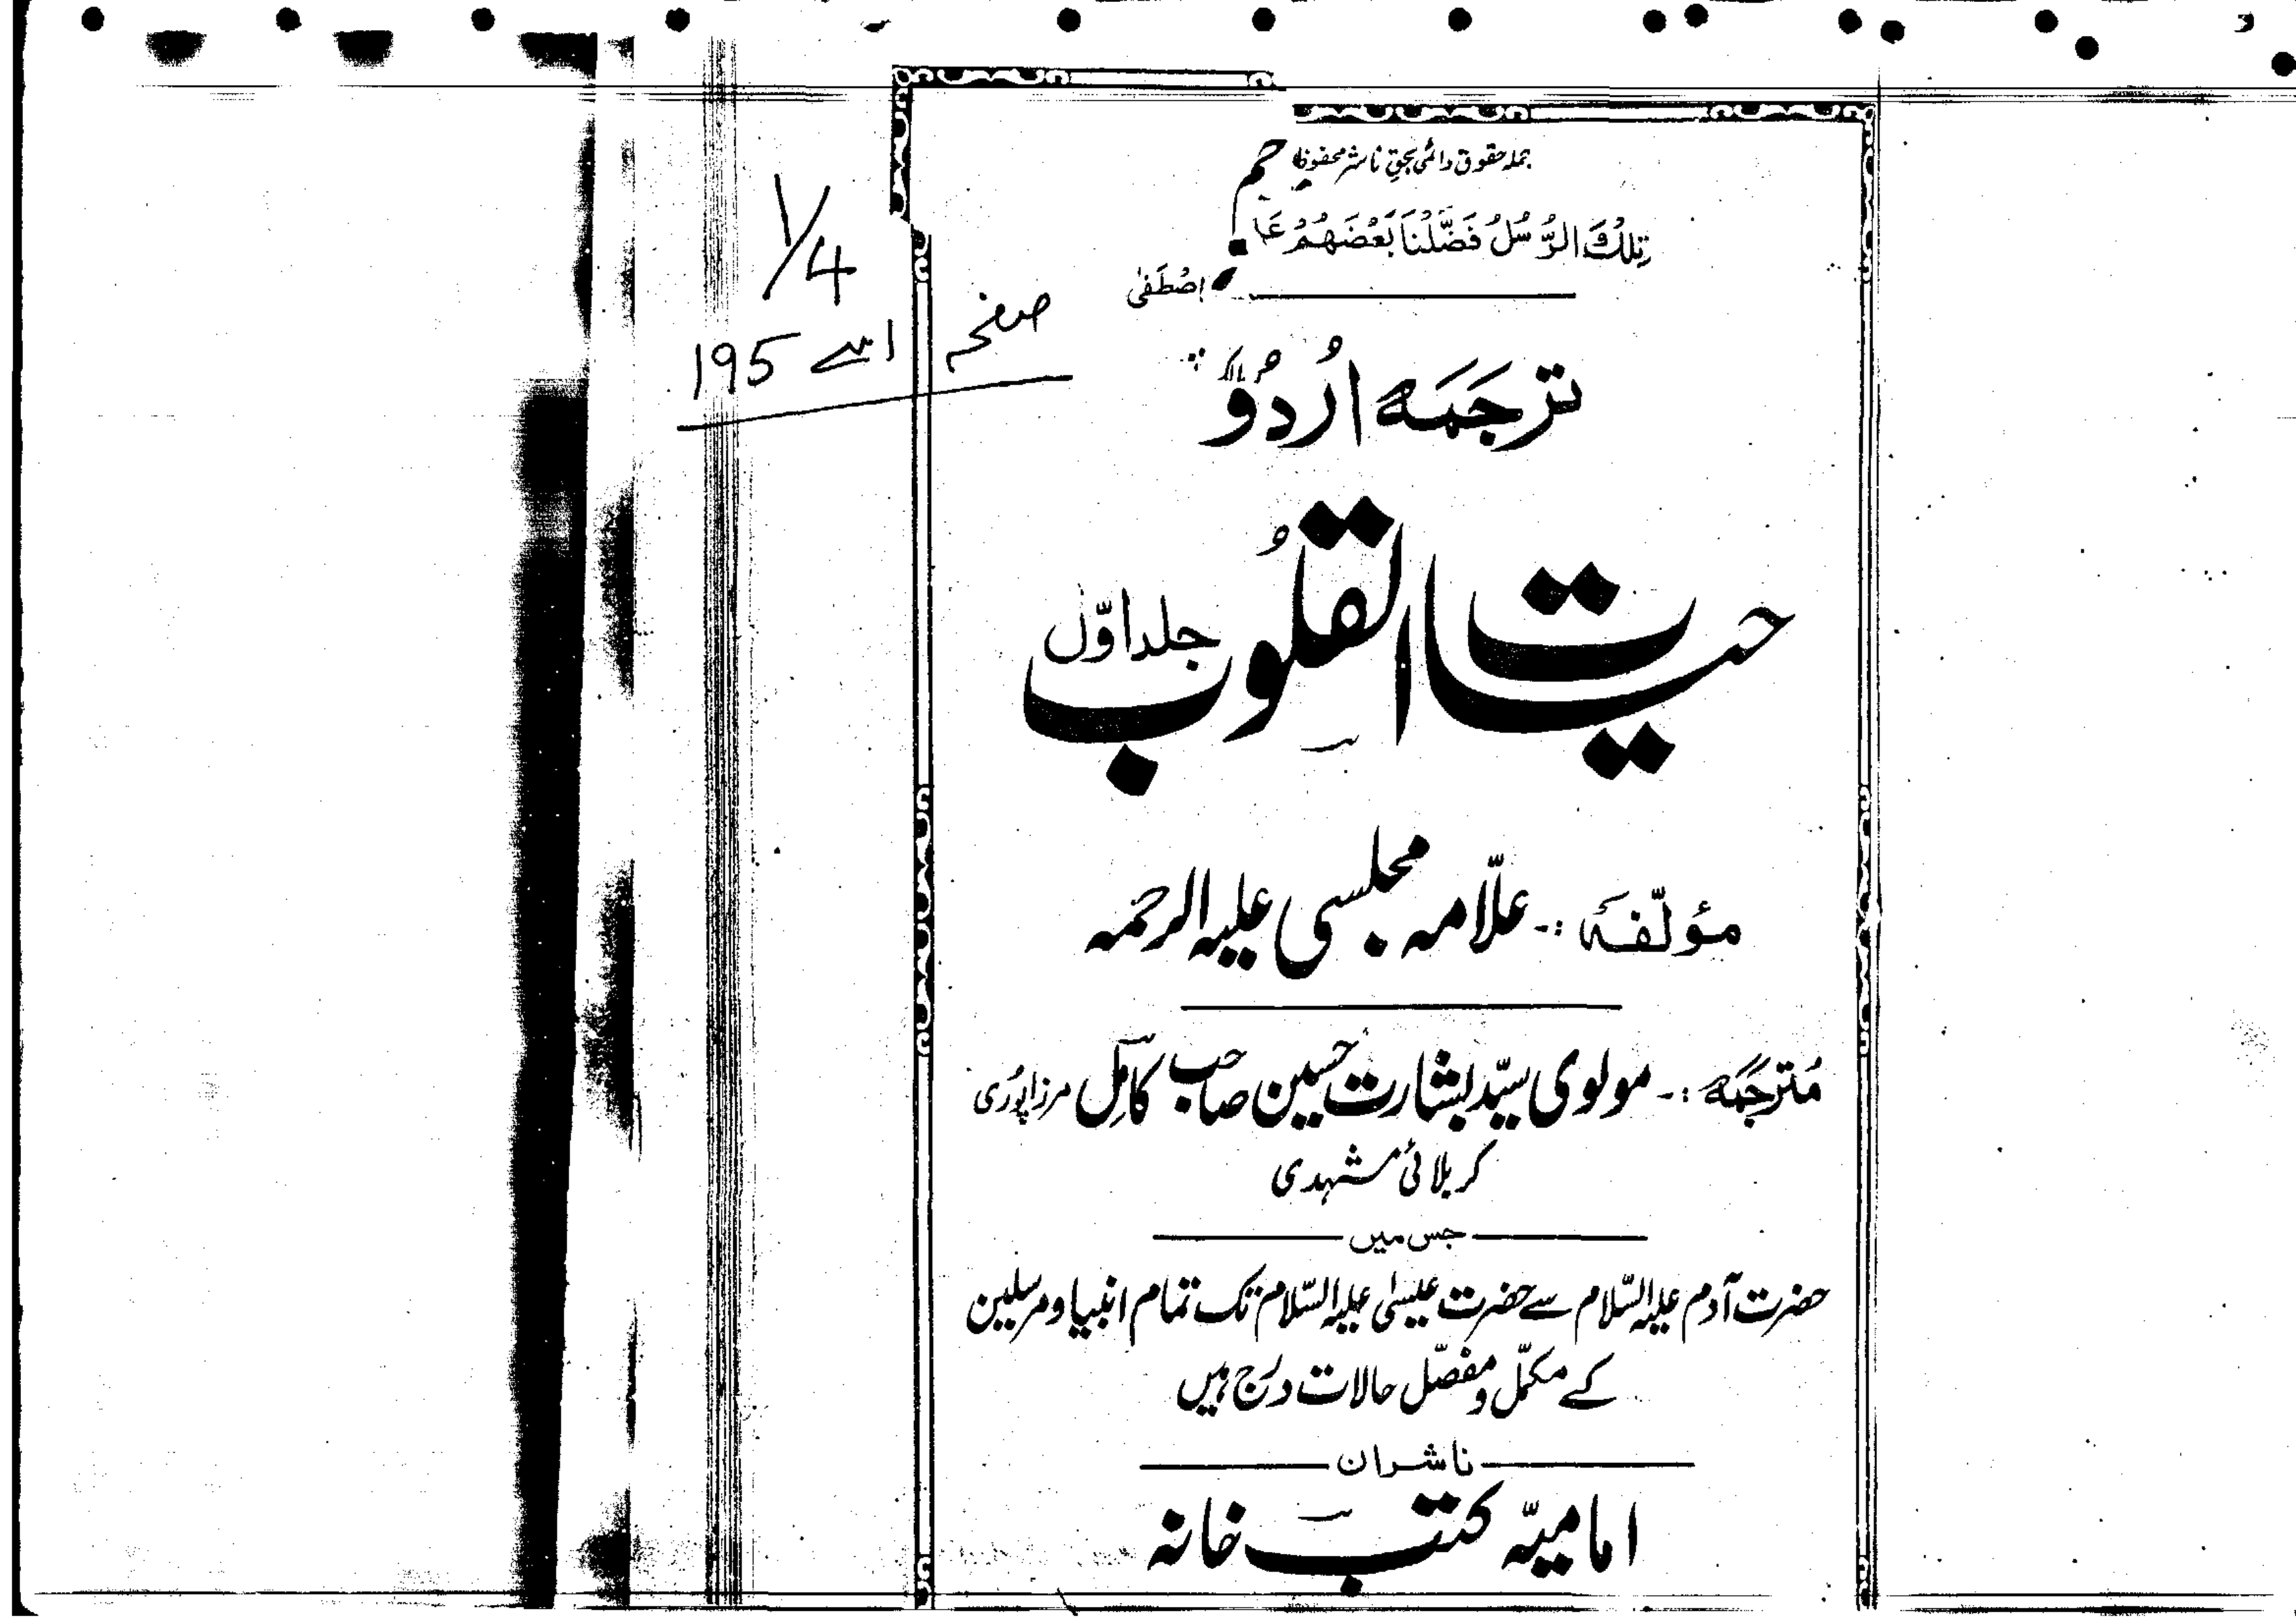 جملہ حقوق دائمی بحق ناشر محفوظ
تِلْكَ الرُّسُلُ فَضَّلْنَا بَعْضَهُمْ
اصْطَفٰی
1/4
صفحہ 1 سے 195
ترجَمَہ اُردُو
حیات القلُوب جلد اوّل
مؤلّفہٗ :۔ علّامہ مجلسی علیہ الرحمہ
مُترجَمہ :۔ مولوی سیّد بشارت حسین صاحب کامل مرزاپُوری
کربلائی مشہدی
جس میں
حضرت آدم علیہ السّلام سے حضرت عیسٰی علیہ السّلام تک تمام انبیا و مرسلین
کے مکمّل و مفصّل حالات درج ہیں
ناشران
امامیّہ کتب خانہ